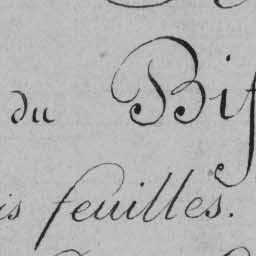 du Bif
is feuilles.